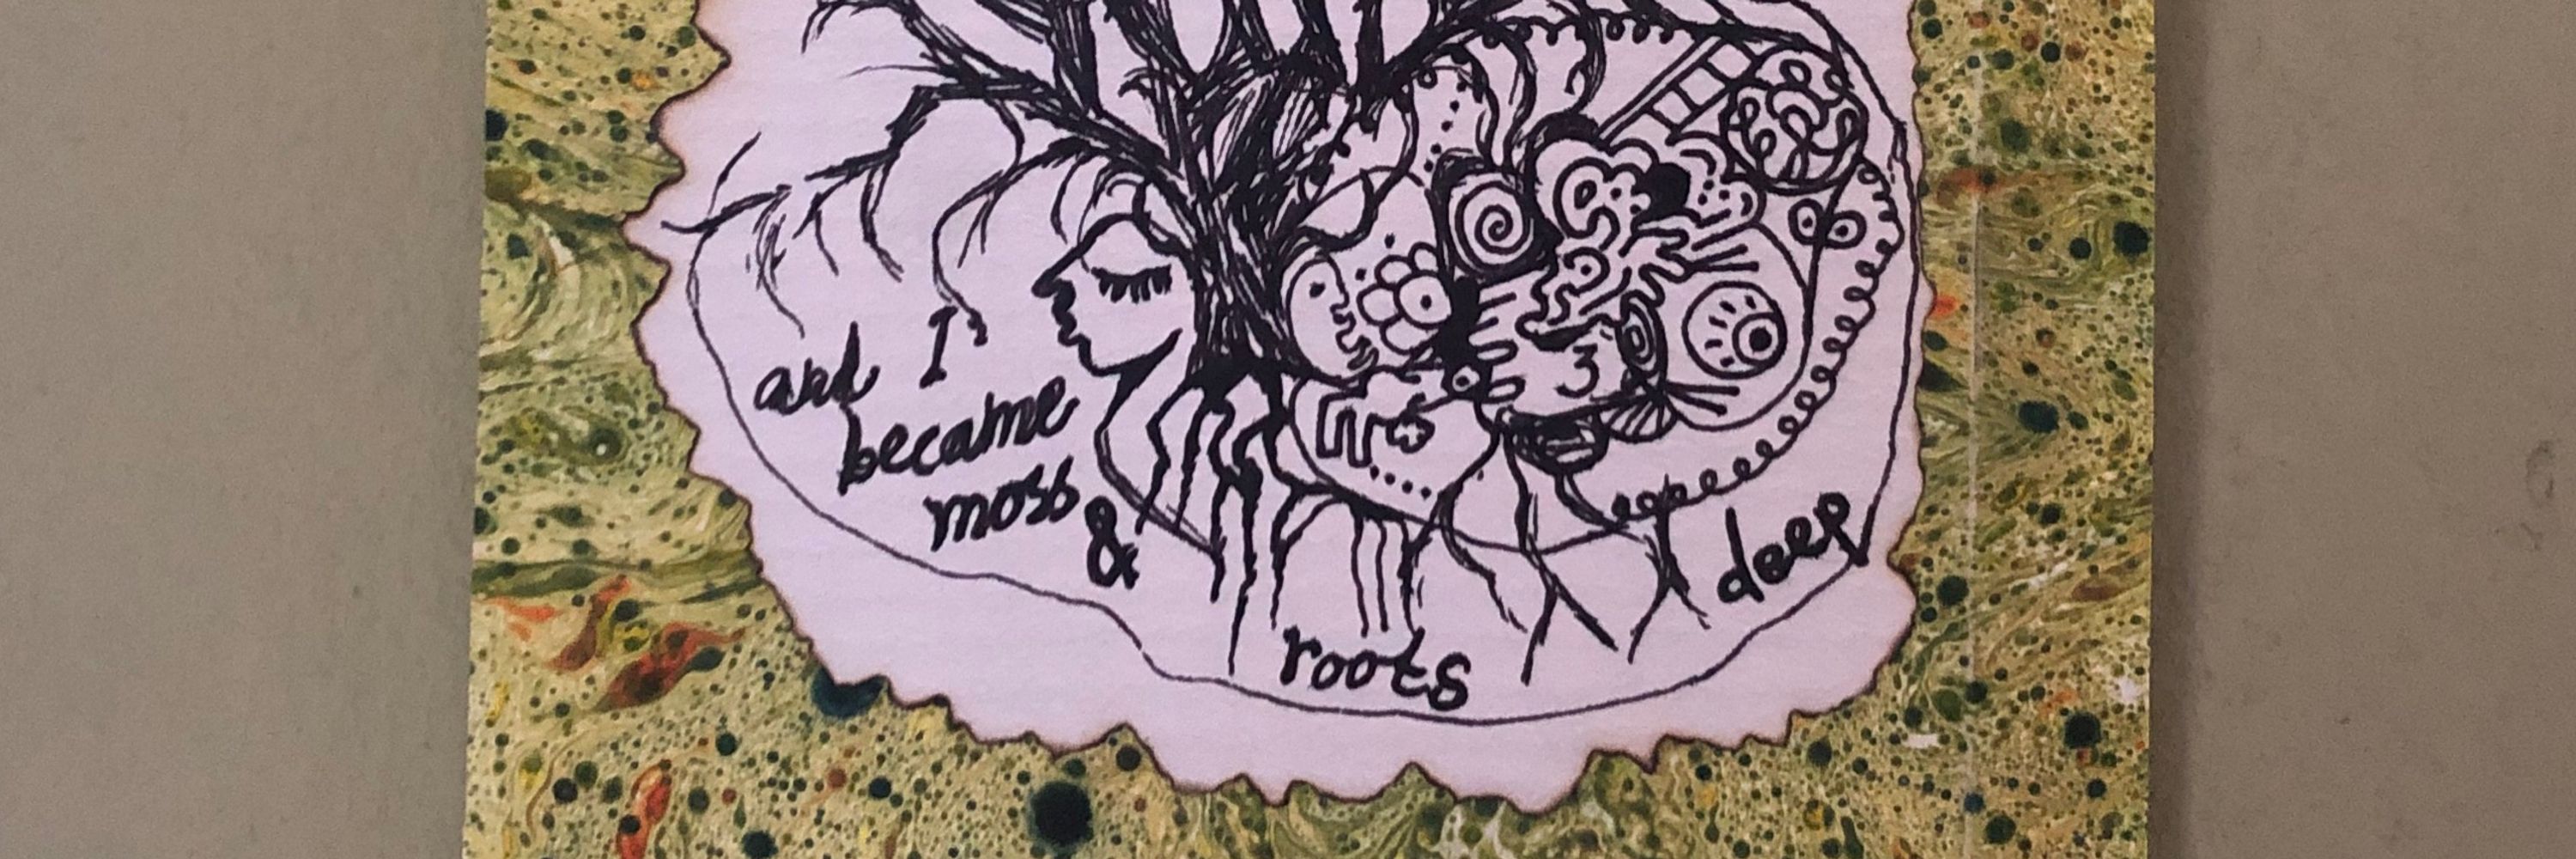 and I
became
moss
&
roots
deep